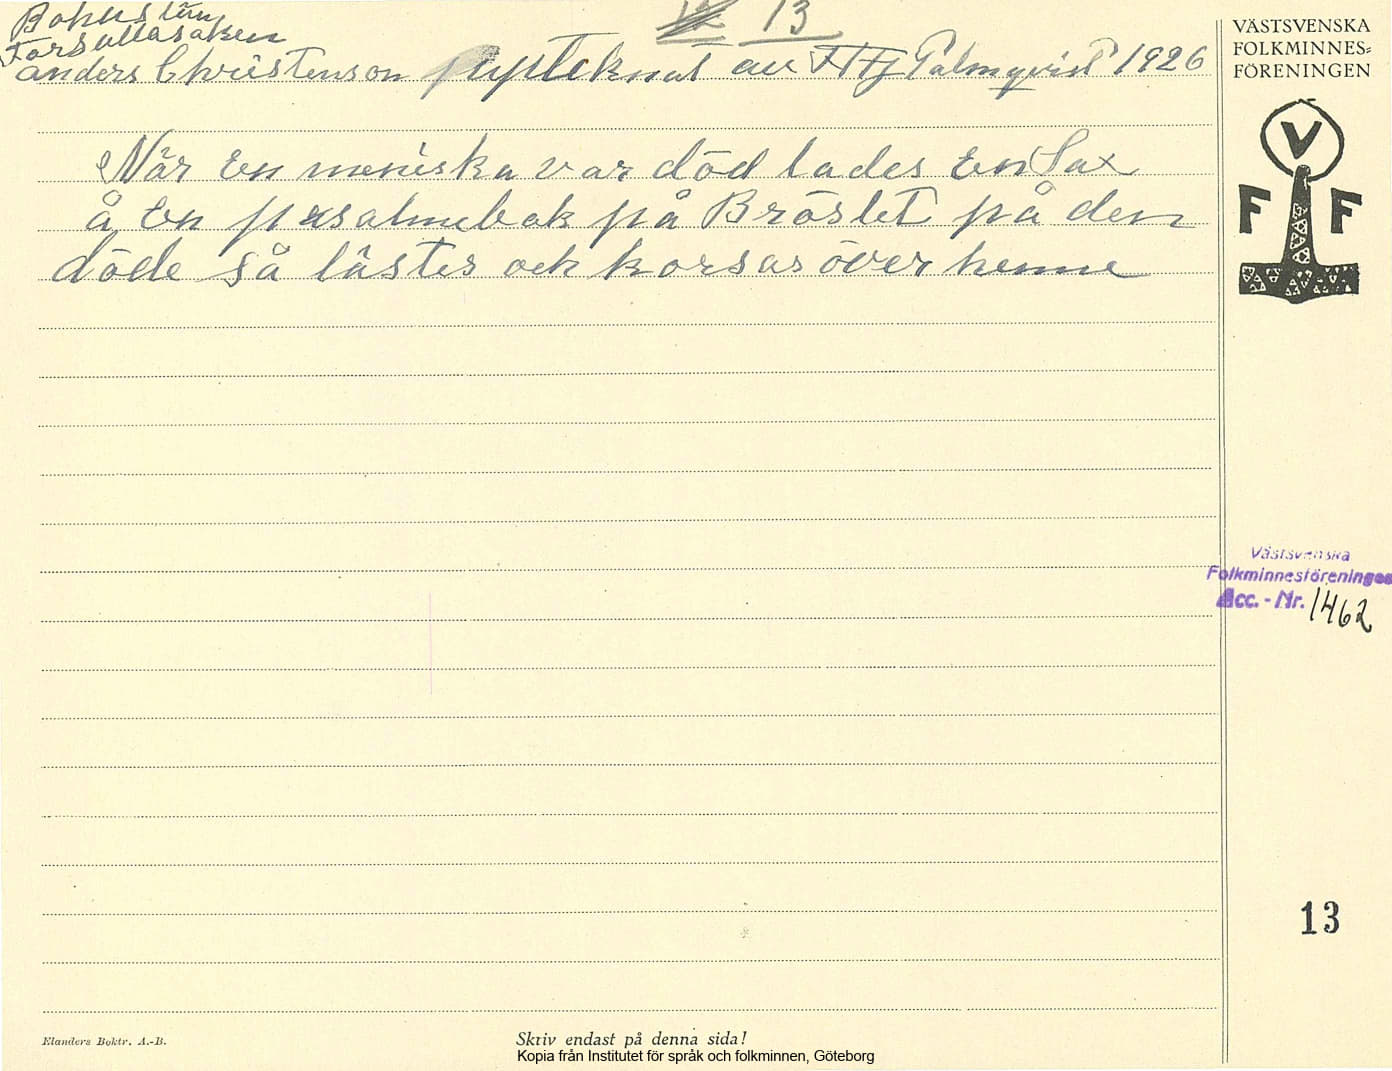 Bohuslän
Forshällasaken
anders Christenson uppteknat av Palmqvist 1926
12 13
När En meniska var död lades En Sax
å En psalmebok på Bröstet på den
döde så lästes och korsas över henne
VÄSTSVENSKA
FOLKMINNES=
FÖRENINGEN
V
F F
Västsvenska
Folkminnesföreningen
Acc. - Nr. 1462
13
Elanders Boktr. A.-B.
Skriv endast på denna sida!
Kopia från Institutet för språk och folkminnen, Göteborg